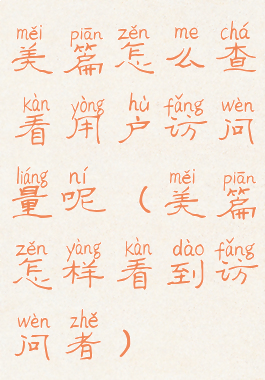 měi piān zěn me chá
美篇怎么查
kàn yòng hù fǎng wèn
看用户访问
liáng ní měi piān
量呢（美篇
zěn yàng kàn dào fǎng
怎样看到访
wèn zhě
问者）